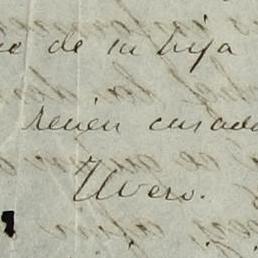 de su hija
recien casada
Uvero.